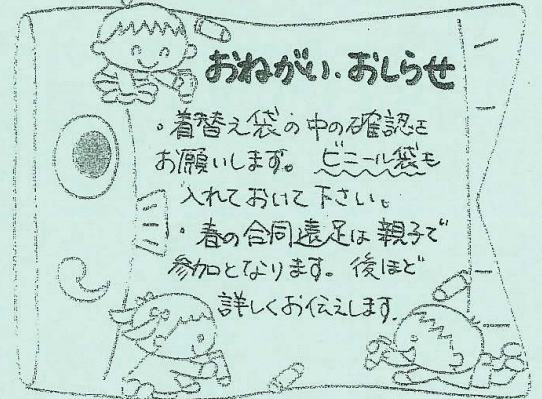 おねがい、おしらせ
・着替え袋の中の確認を
お願いします。ビニール袋も
入れておいて下さい。
・春の合同遠足は親子で
参加となります。後ほど
詳しくお伝えします。